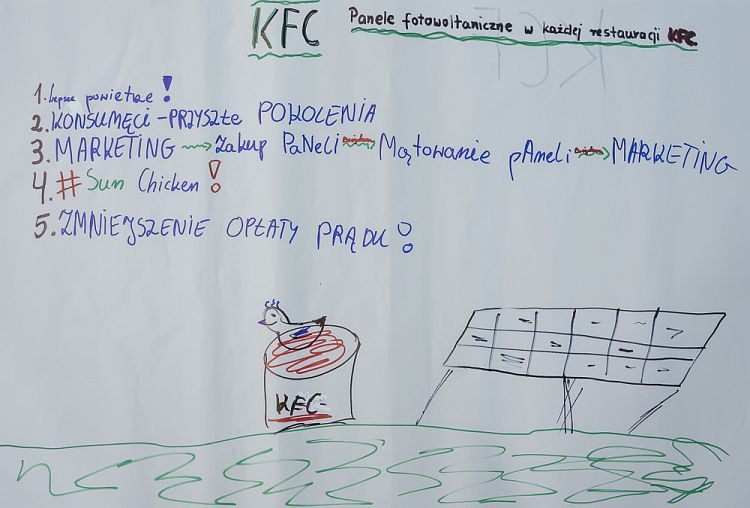 KFC
Panele fotowoltaniczne w każdej restauracji KFC.
1. Lepsze powietrze!
2. KONSUMĘCI - PRZYSZŁE POKOLENIA
3. MARKETING → Zakup PaNeli → Mątowanie pAneli → MARKETING
4. # Sun Chicken!
5. ZMNIEJSZENIE OPŁATY PRĄDU!
KFC